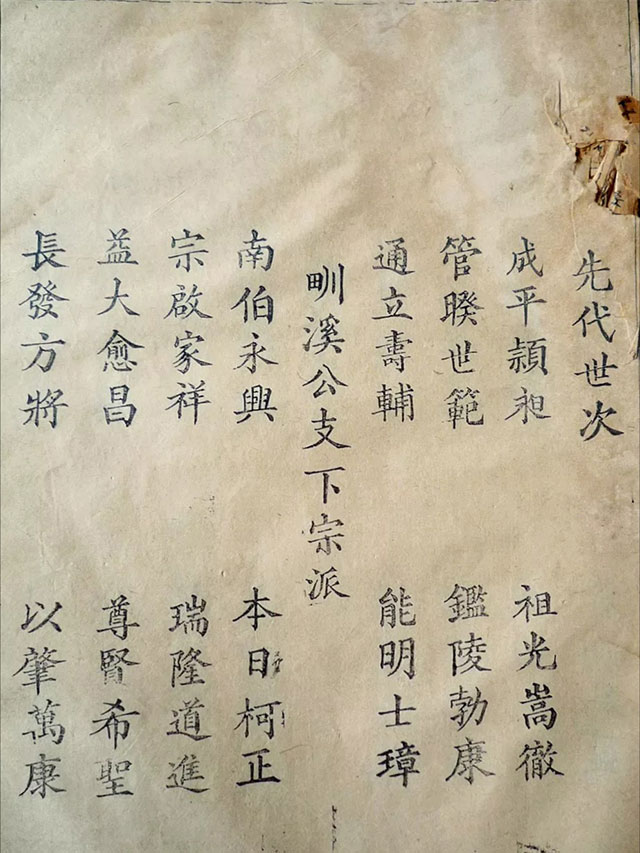 先代世次
成平頴昶 祖光嵩徹
管暌世範 鑑陵勃康
通立壽輔 能明士璋
甽溪公支下宗派
南伯永興 本日柯正
宗啟家祥 瑞隆道進
益大愈昌 尊賢希聖
長發方將 以肇萬康